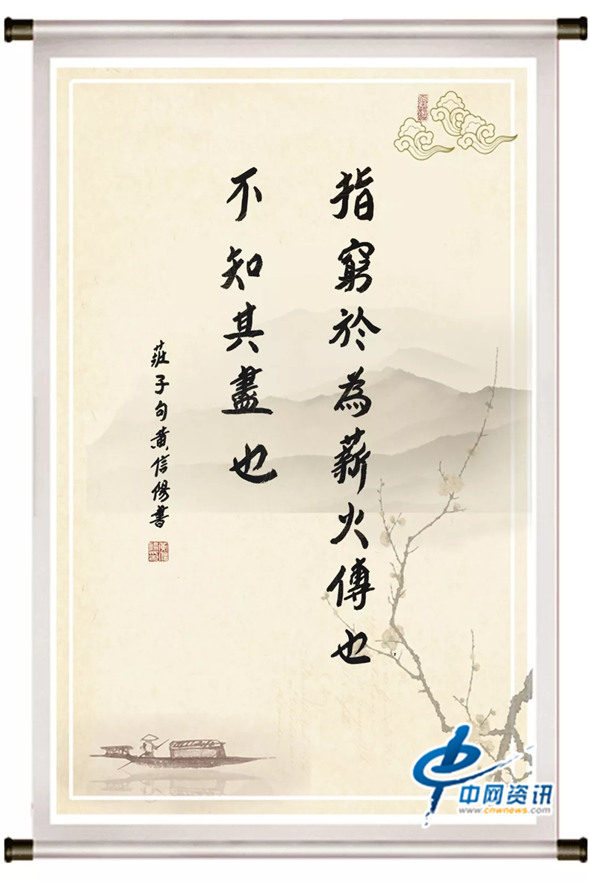 指窮於為薪火傳也
不知其盡也
莊子句黄信陽書
中网资讯
www.cnwnews.com